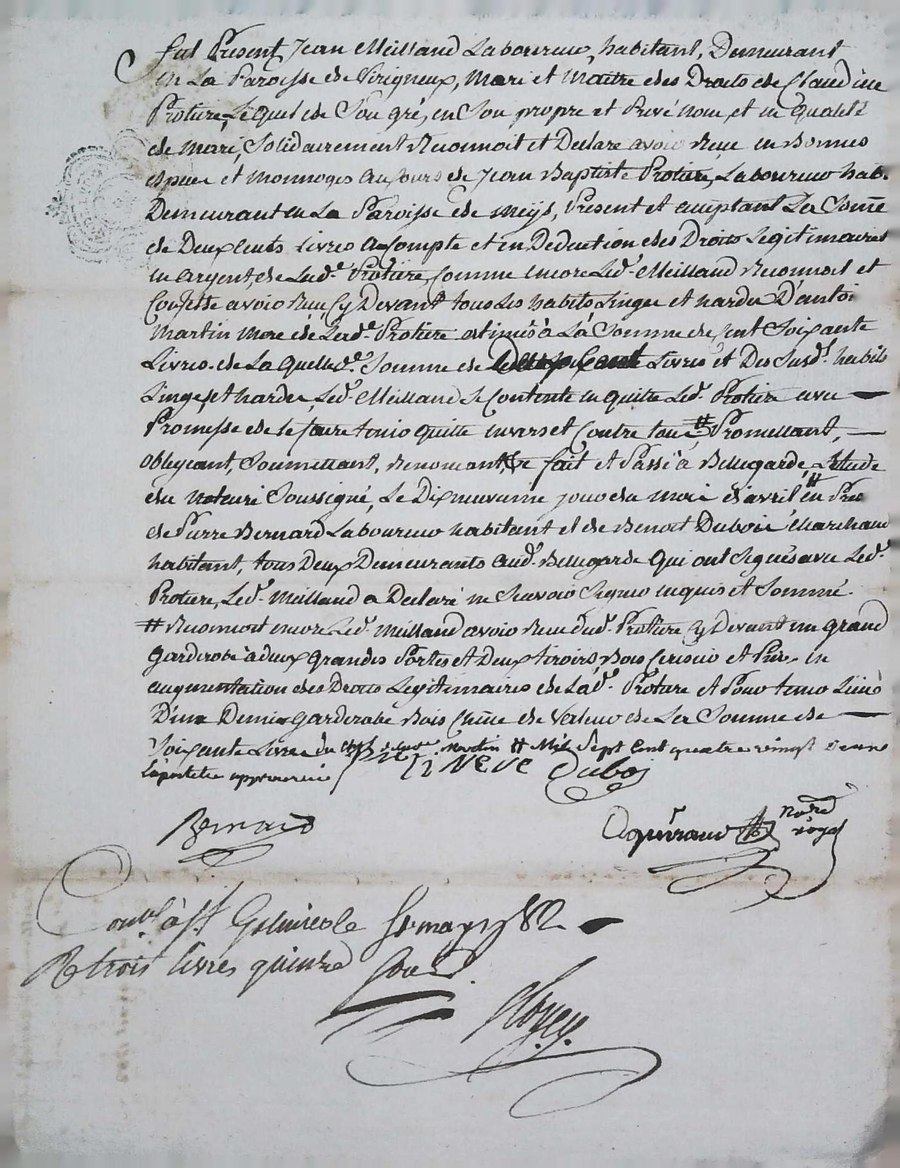 fut Présent Jean Meilland Laboureur, habitant, Demeurant
en La Paroisse de Virigneux, Mari et Maitre des Droits de Claudine
Protiere, Lequel de Son gré, en Son propre et Privé nom, et en qualité
de mari, Solidairement Reconnoit et Declare avoir Reçu en Bonnes
espece et monnoyes au Cours de Jean Baptiste Protiere, Laboureur hab.
Demeurant en La Paroisse de Meijs, Présent et acceptant La Some
de Deux Cents Livres a Compte et en Deduction des Droits Legitimaires
en argent, de Lad.e Protiere, Comme encore Led.t Meilland Reconnoit et
Confesse avoir Reçu Cy Devant tous Les habits Linge et hardes D'antoi
Martin More de Lad.e Protiere estimés à La Somme de Cent Soixante
Livres de La quelle.de Somme de Deux Cent Livres et Des Susd.ts habits
Linge, et hardes, Led.t Meilland Se Contente en quitte Led.t Protiere avec
Promesse de le faire tenir quitte envers et Contre tous # Promettant,
obligeant, Soumettant, Renonçant, fait et Passé à Bellegarde, Etude
du notaire Soussigné, Le Dixneuvieme jour du moi d'avril # en Pnce
de Pierre Bernard Laboureur habitant et de Benoit Duboie Marchand
habitant, tous Deux Demeurants aud.t Bellegarde qui ont Signés avec Led.t
Protiere, Led.t Meilland a Declaré ne Scavoir Signer enquis et Sommé.
# Reconnoit encore Led.t Meilland avoir Reçu dud.t Protiere Cy Devant un grand
garderobe à deux grandes Portes et Deux tiroirs Bois Cerisier et en
augmentation des Droits Legitimaires de Lad.e Protiere et Pour tenir Lieu
D'une Demie garderobe Bois Chene de Valeur de La Somme de
Soixante Livre du Chef de Martin # Mil Sept Cent quatre vingt deux
Lapostille approuvée
Dubois
Bernard
not.re royal
Con.lé à St Galmier le may 1782
R trois livres quinze sous